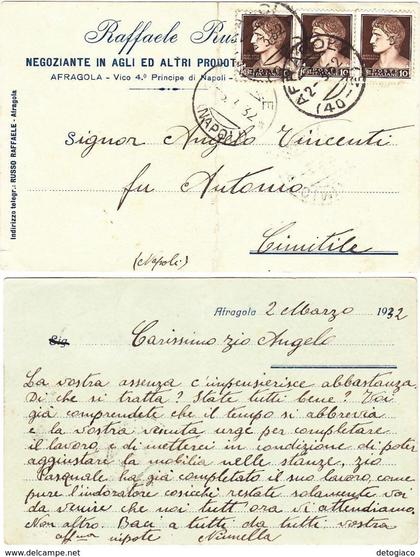 Raffaele Rus
NEGOZIANTE IN AGLI ED ALTRI PRODOT
AFRAGOLA - Vico 4.º Principe di Napoli -
Indirizzo telegr.: RUSSO RAFFAELE - Afragola
10 10 10
AFRAGOLA
2.3.32
(NAPOLI)
Signor Angelo Vincenti
fu Antonio
Cimitile
(Napoli)
Afragola 2 Marzo 1932
Sig. Carissimo zio Angelo
La vostra assenza c'impensierisce abbastanza
Di che si tratta? State tutti bene? Voi
già comprendete che il tempo si abbrevia
e la vostra venuta urge per completare
il lavoro, e di metterci in condizione di poter
aggiustare la mobilia nelle stanze, zio
Pasquale ha già completato il suo lavoro, come
pure l'indoratore cosicché restate solamente voi
da venire che noi tutt'ora vi attendiamo.
Non altro. Baci a tutti da tutti vostra
aff.ma nipote Ninella
detogiaco